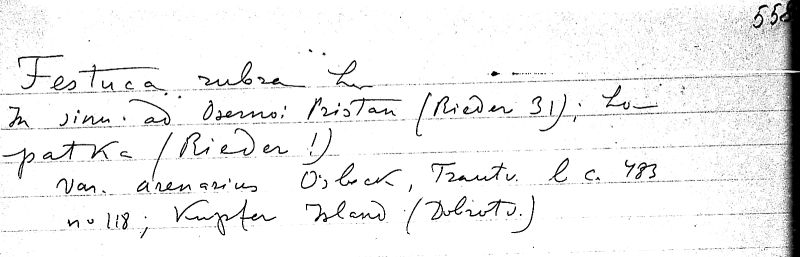 558
Festuca rubra L.
In sinu ad Osernoi Pristan (Rieder 31); Lo-
patka (Rieder!)
var. arenarius Osbeck, Trautv. l. c. 483
no 118; Kupfer Island (Dobrotv.)